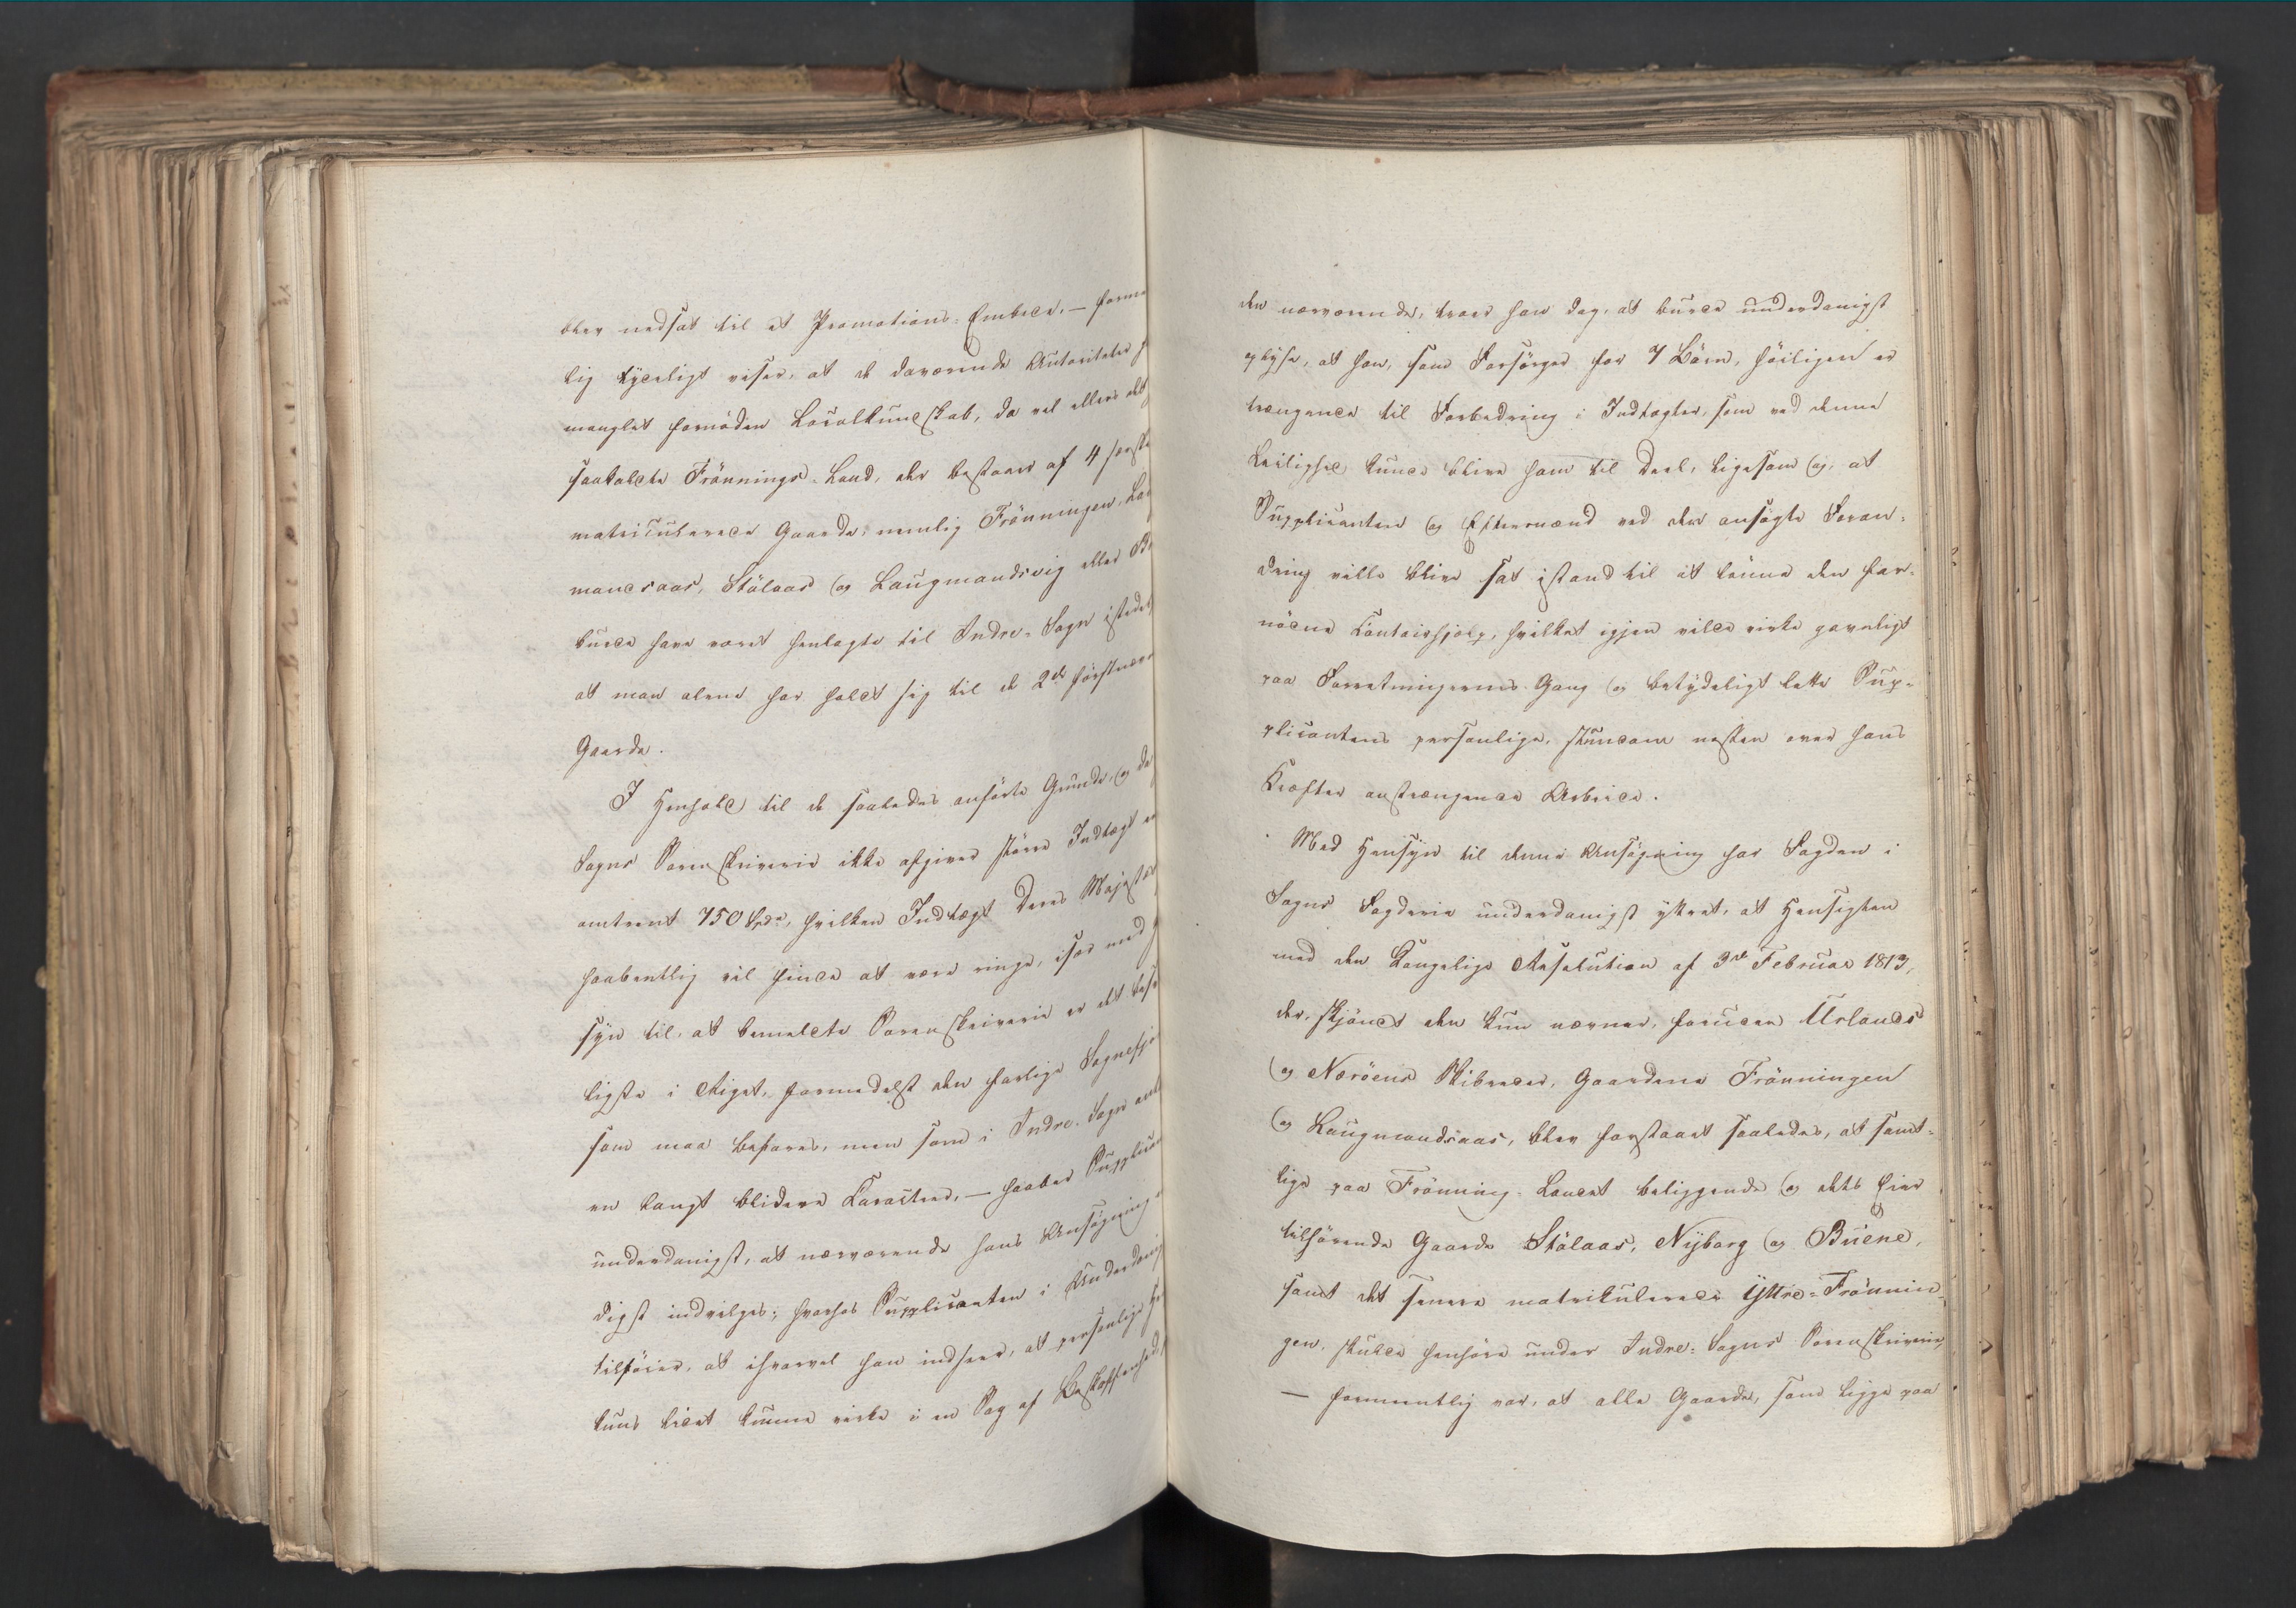 blev nedsat til et Promotions-Embede, — forme
lig tydeligt viser, at de daværende Autoriteter
manglet fornöden Localkundskab, da vel ellers det
saakaldte Frönnings-Land, der bestaaer af 4 særskil
matriculerede Gaarde, nemlig Frönningen, Lau
mandsaas, Stölaas og Laugmandsvig eller
burde have været henlagte til Indre-Sogn istedet
at man alene har holdt sig til de 2de förstnævn
Gaarde.
I Henhold til de saaledes anförte Grunde, og da
Sogns Sorenskriverie ikke afgiver större Indtægt en
omtrent 750 Spd., hvilken Indtægt Deres Majestæt
haabentlig vil finde at være ringe, især med
syn til, at bemeldte Sorenskriverie er det besv
ligste i Riget, formedelst den farlige Sognefjo
som maa befares, men som i Indre-Sogn anta
en langt blidere Caracteer, — haaber Supplican
underdanigst, at nærværende hans Ansögning
digst indvilges; hvorhos Supplicanten i Underdanig
tilföier, at ihvorvel han indseer, at personlige He
kuns lidet kunne virke i en Sag af Beskaffenhed,
den nærværende, troer han dog, at burde underdanigst
oplyse, at han, som Forsörger for 7 Börn, höiligen er
trængende til Forbedring i Indtægter, som ved denne
Leilighed kunde blive ham til Deel, ligesom og, at
Supplicanten og Eftermænd ved den ansögte Foran-
dring ville blive sat istand til at lönne den for-
nödne Contoirhjelp, hvilket igjen vilde virke gavnligt
paa Forretningernes Gang og betydeligt lette Sup-
plicantens personlige, stundom nesten over hans
Kræfter anstrængende Arbeide.
Med Hensyn til denne Ansögning har Fogden i
Sogns Fogderie underdanigst yttret, at Hensigten
med den Kongelige Resolution af 3de Februar 1813,
der, skjöndt den kun nævner, foruden Urlands
og Næröens Skibreder, Gaardene Frönningen
og Laugmandsaas, blev forstaaet saaledes, at samt-
lige paa Frönning-Landet beliggende og dets Eier
tilhörende Gaarde Stölaas, Nyborg og Buene,
samt det senere matrikulerede Yttre-Frönnin-
gen, skulde henhöre under Indre-Sogns Sorenskriverie,
— formeentlig var, at alle Gaarde, som ligge paa